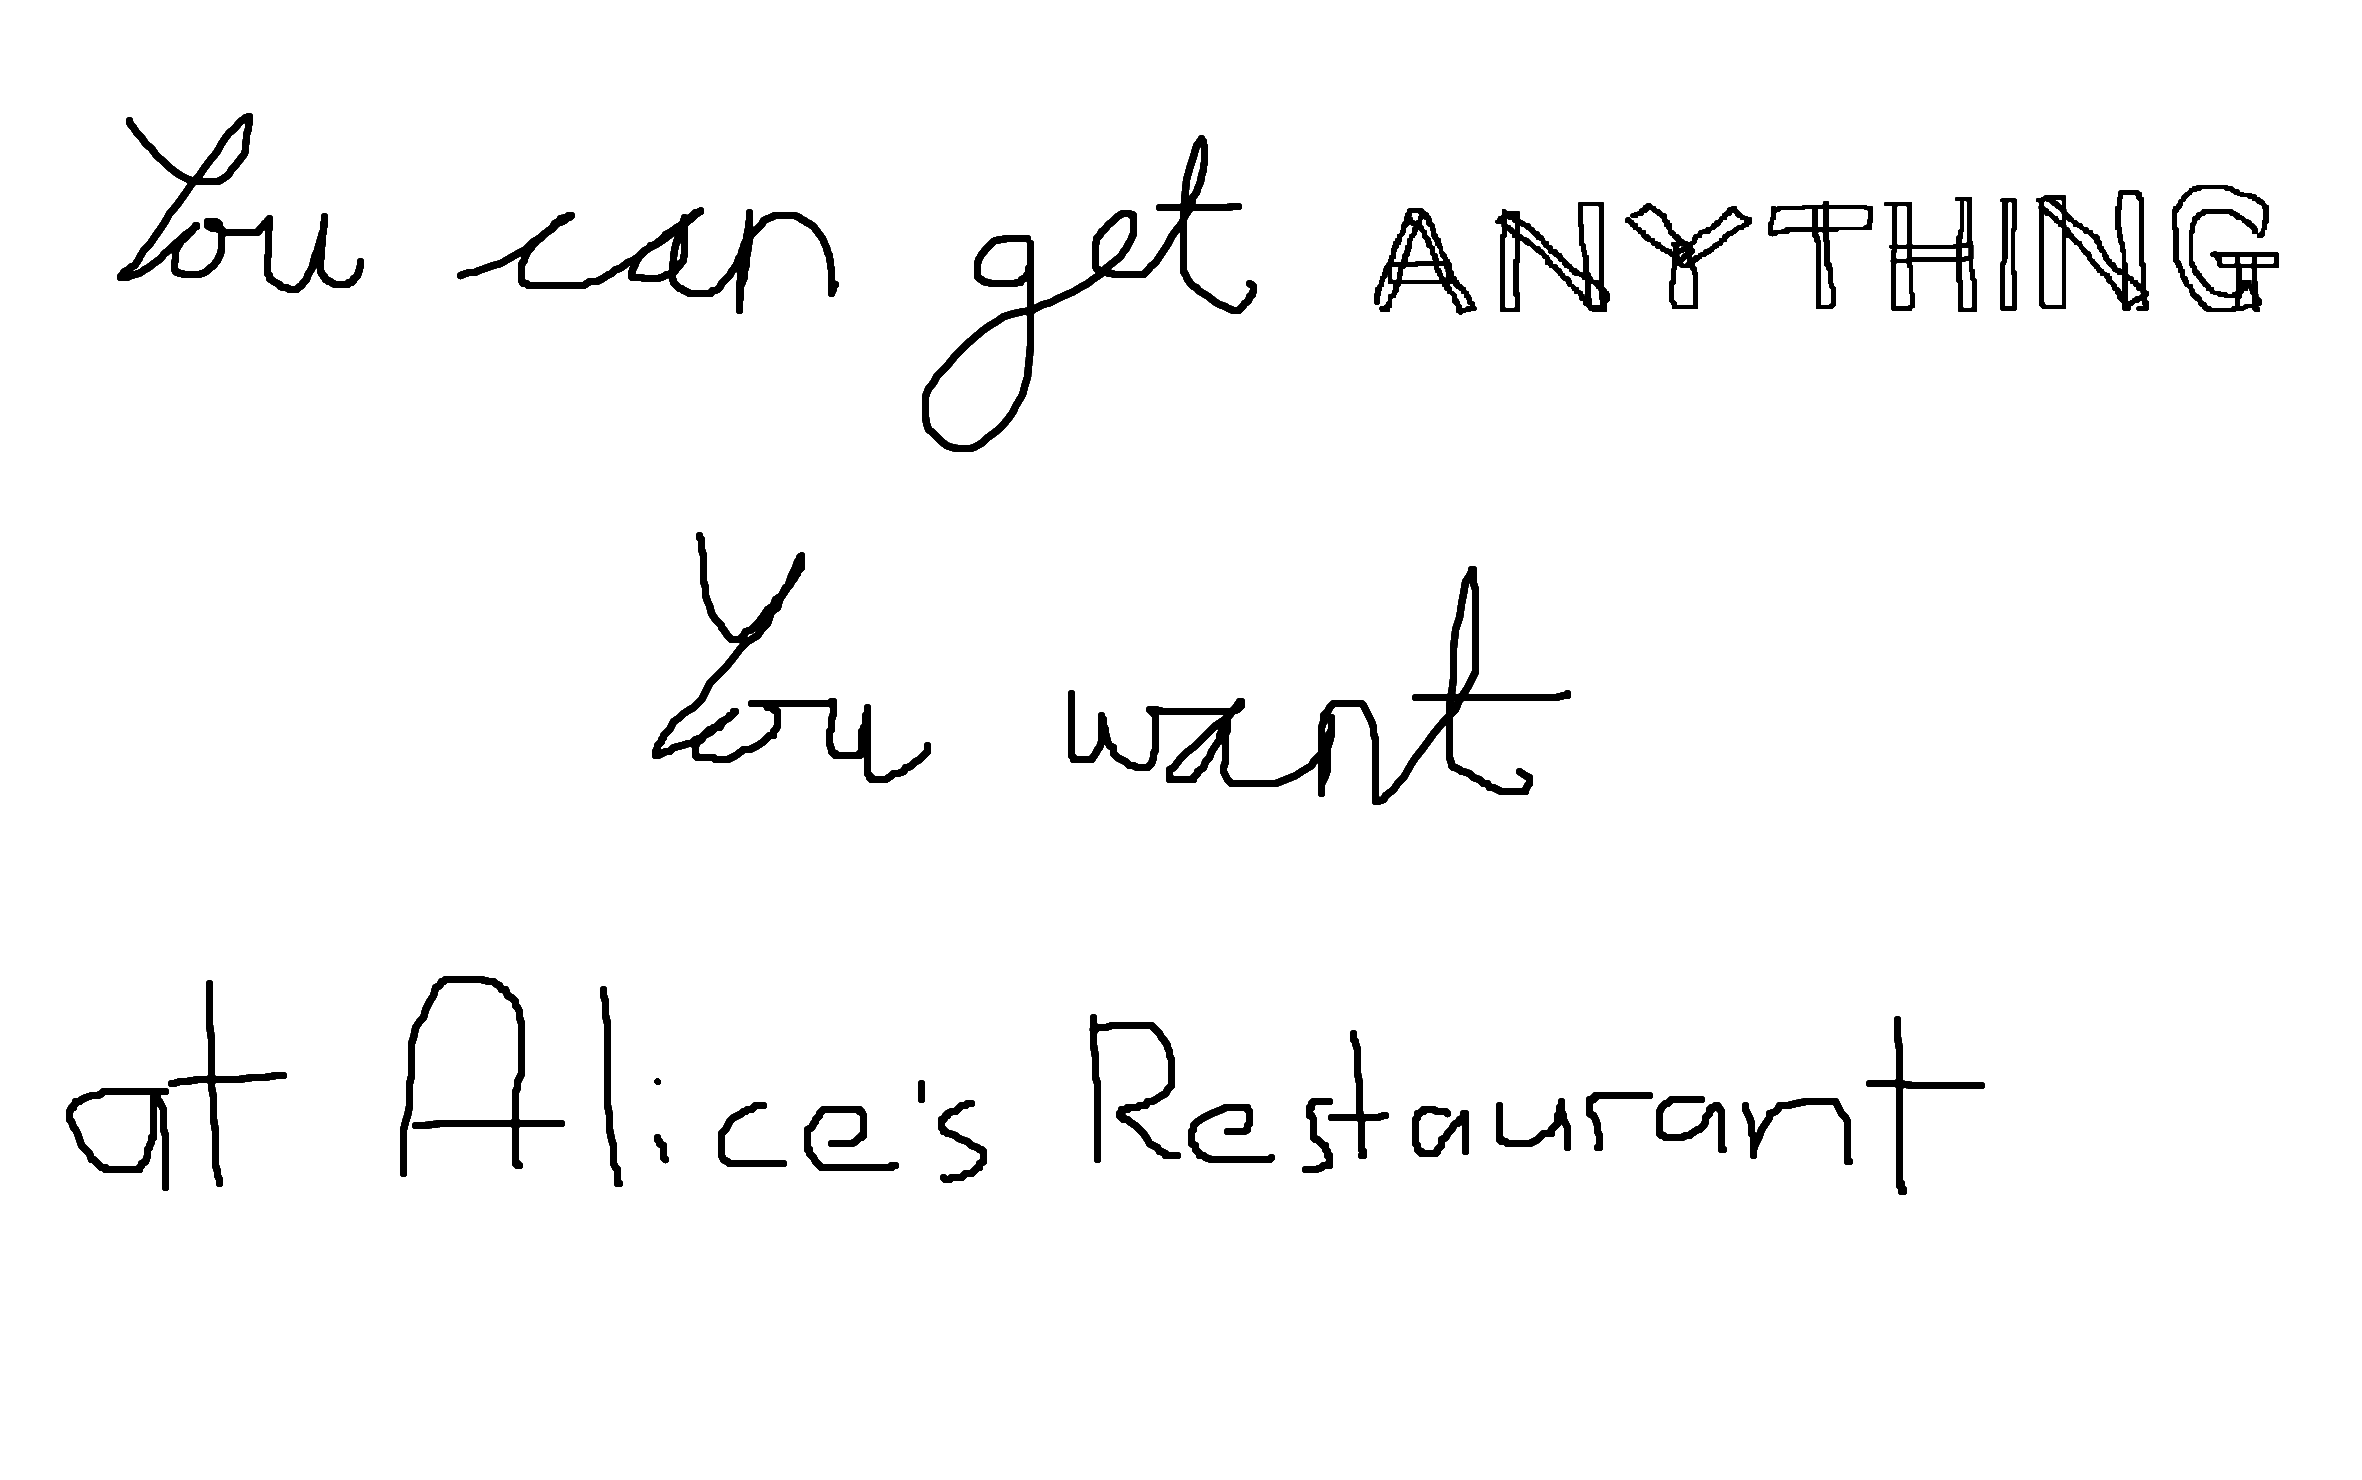 You can get ANYTHING
You want
at Alice's Restaurant